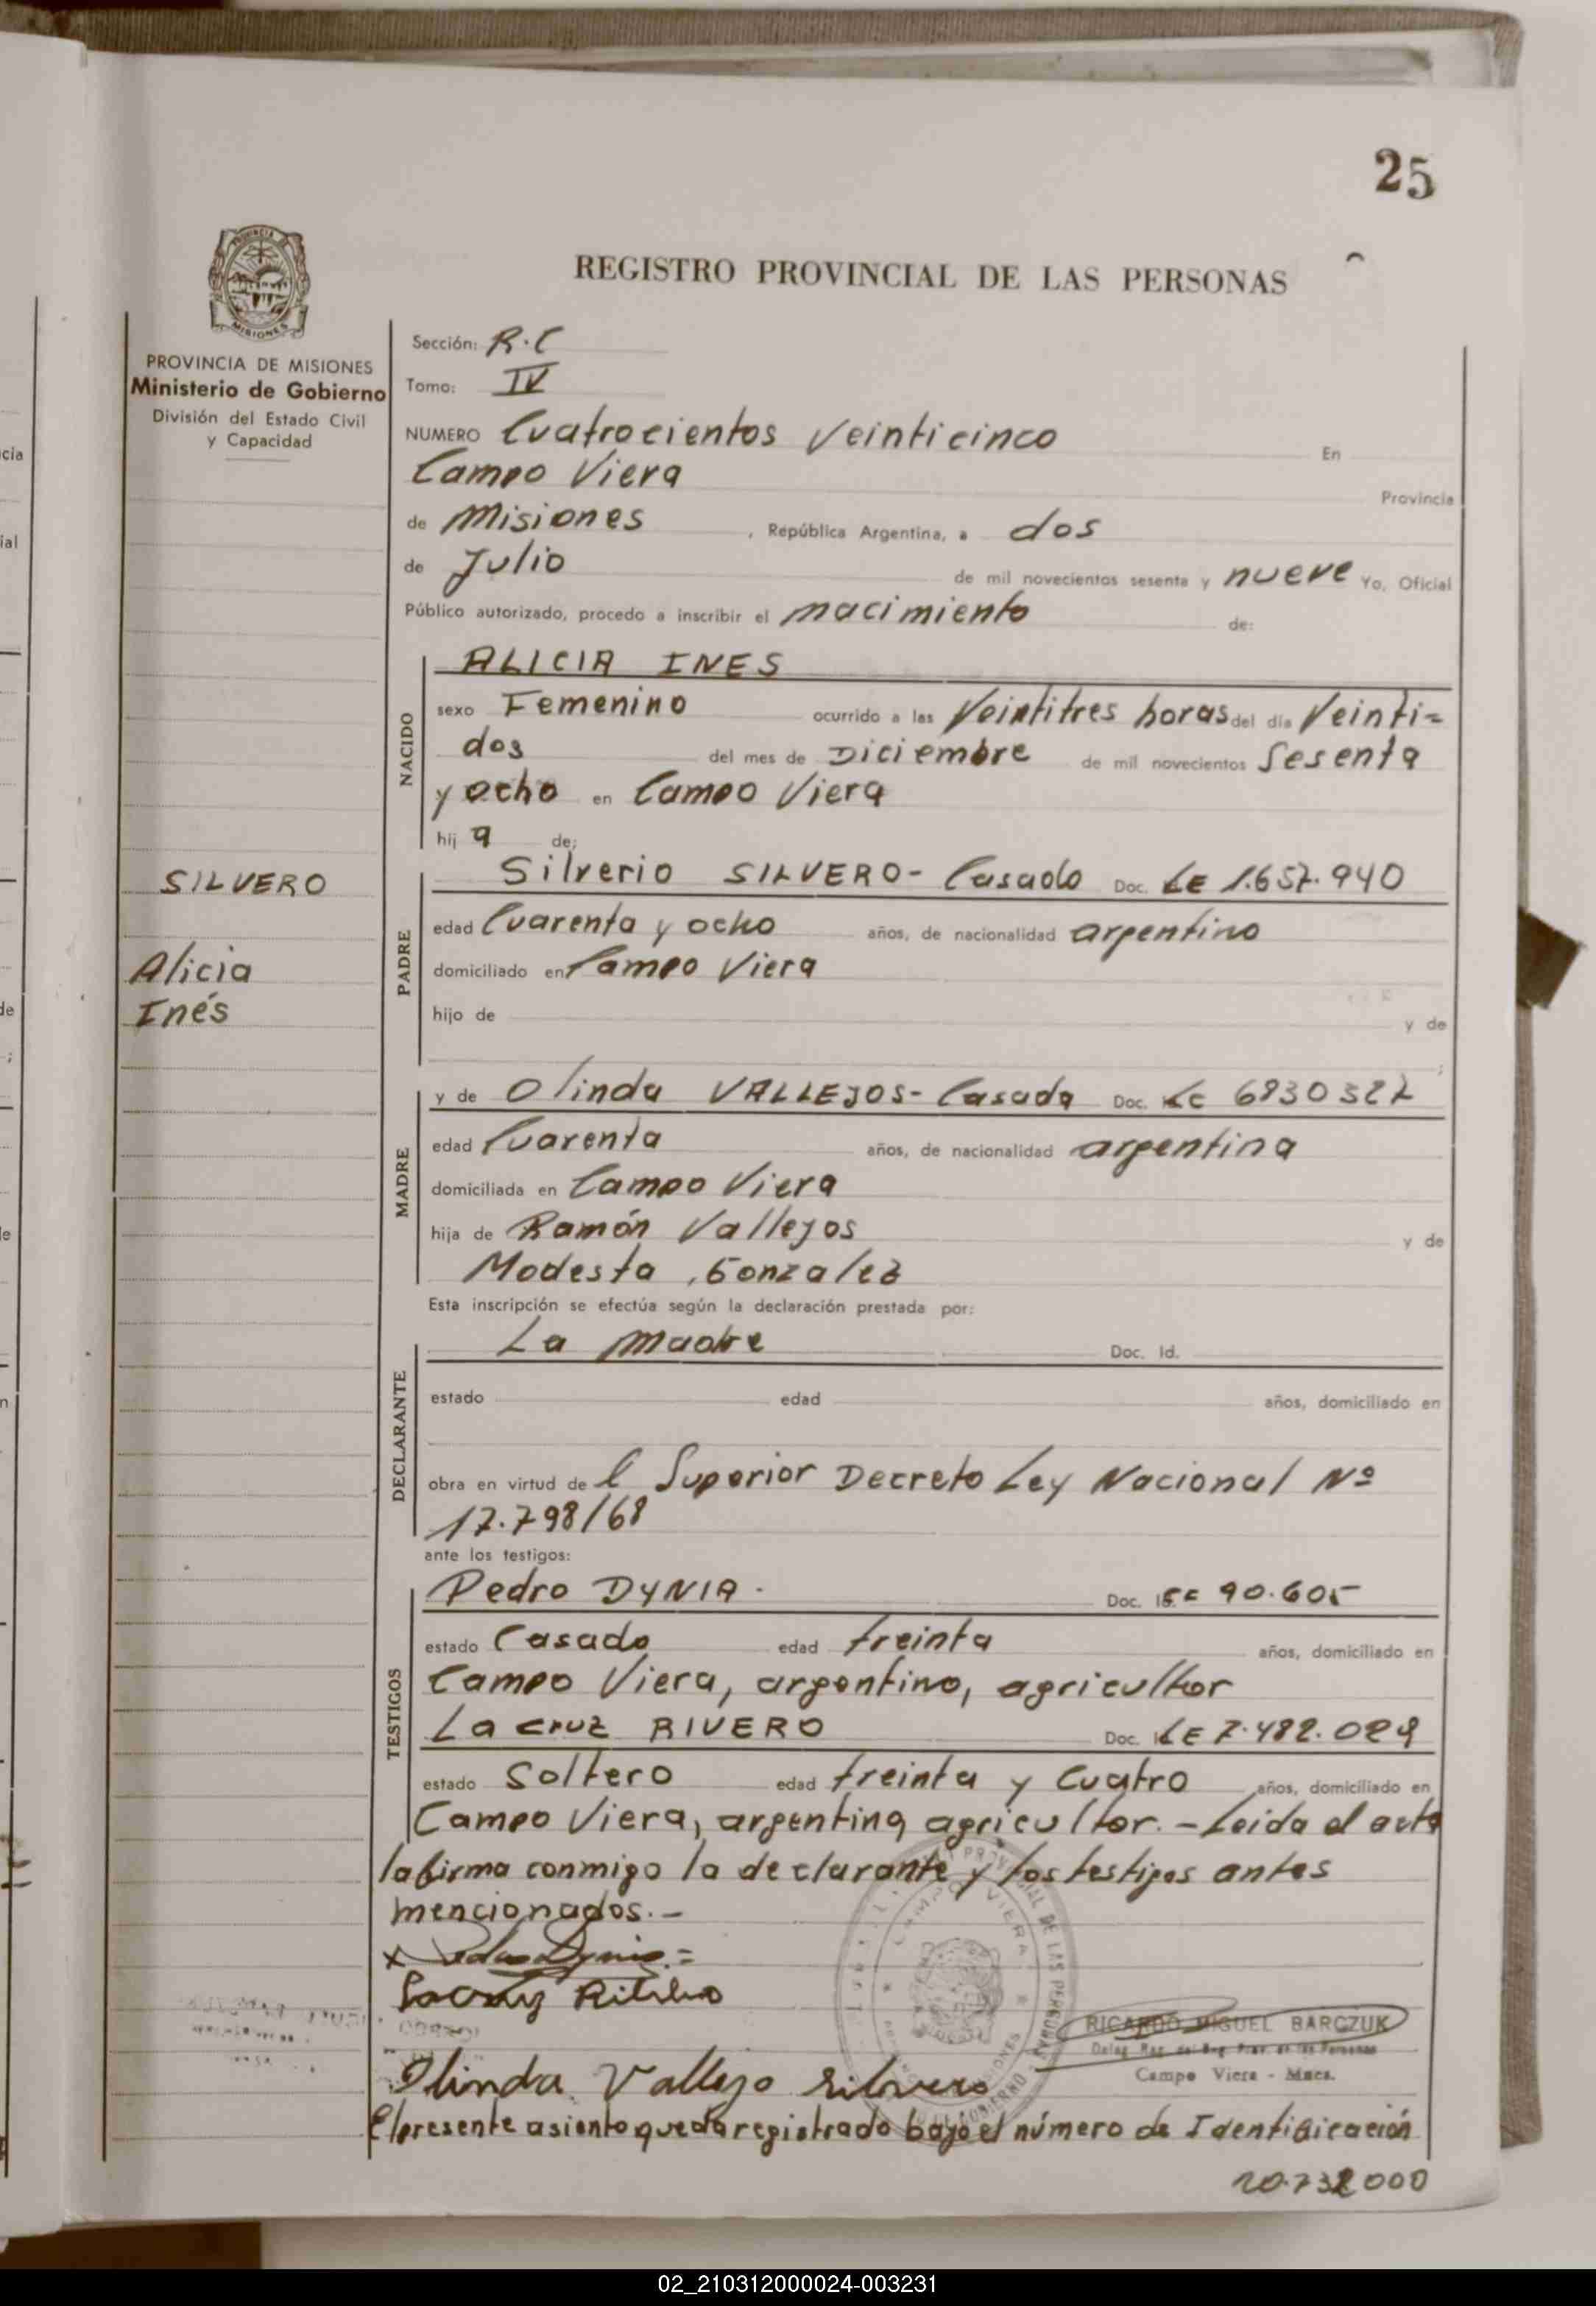 25
REGISTRO PROVINCIAL DE LAS PERSONAS
PROVINCIA DE
MISIONES
PROVINCIA DE MISIONES
Ministerio de Gobierno
División del Estado Civil
y Capacidad
SILVERO
Alicia
Inés
Sección: R.C
Tomo: IV
NUMERO Cuatrocientos Veinticinco En
Campo Viera Provincia
de Misiones, República Argentina, a dos
de Julio de mil novecientos sesenta y nueve Yo, Oficial
Público autorizado, procedo a inscribir el nacimiento de:
NACIDO
ALICIA INES
sexo Femenino ocurrido a las Veintitres horas del día Veinti=
dos del mes de Diciembre de mil novecientos Sesenta
y ocho en Campo Viera
hij a de;
PADRE
Silverio SILVERO- Casado Doc. LE 1.657.940
edad Cuarenta y ocho años, de nacionalidad argentino
domiciliado en Campo Viera
hijo de y de
MADRE
y de Olinda VALLEJOS- Casada Doc. LC
edad Cuarenta años, de nacionalidad argentina
domiciliada en Campo Viera
hija de Ramón Vallejos y de
Modesta Gonzalez
Esta inscripción se efectúa según la declaración prestada por:
DECLARANTE
La madre Doc. Id.
estado edad años, domiciliado en
obra en virtud de l Superior Decreto Ley Nacional Nº
17.798/68
ante los testigos:
TESTIGOS
Pedro DYNIA. Doc. 90.605
estado Casado edad treinta años, domiciliado en
Campo Viera, argentino, agricultor
La Cruz RIVERO Doc. LE 7.482.029
estado Soltero edad treinta y Cuatro años, domiciliado en
Campo Viera, argentino, agricultor.- Leida el acta
la firma conmigo la declarante y los testigos antes
mencionados.-
x Pedro Dynia.=
Olinda Vallejo Silvero
RICARDO MIGUEL BARCZUK
Campo Viera - Mnes.
CAMPO VIERA
El presente asiento queda registrado bajo el número de Identificación
20.732000
02_210312000024-003231